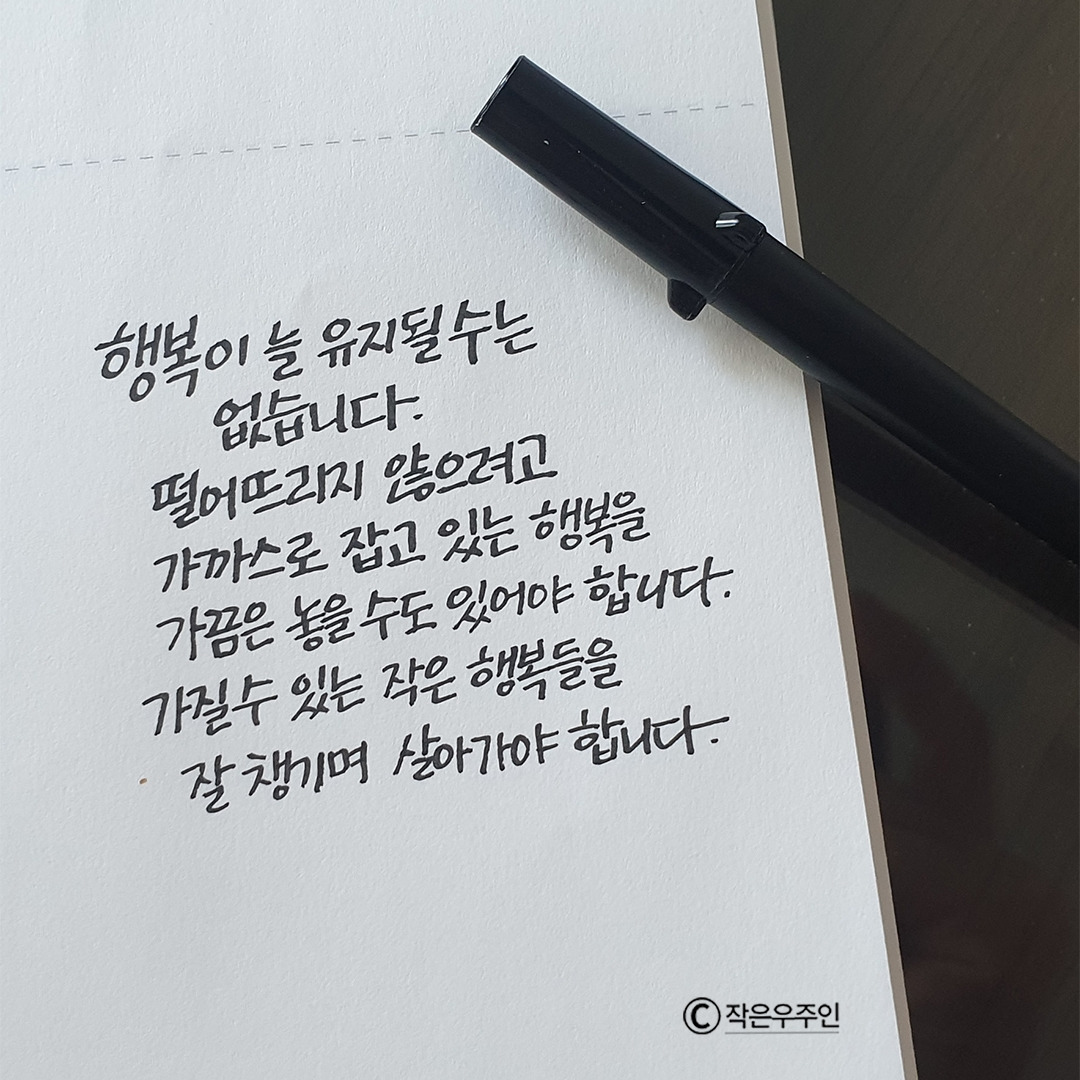 행복이 늘 유지될 수는
없습니다.
떨어뜨리지 않으려고
가까스로 잡고 있는 행복을
가끔은 놓을 수도 있어야 합니다.
가질 수 있는 작은 행복들을
잘 챙기며 살아가야 합니다.
ⓒ작은우주인